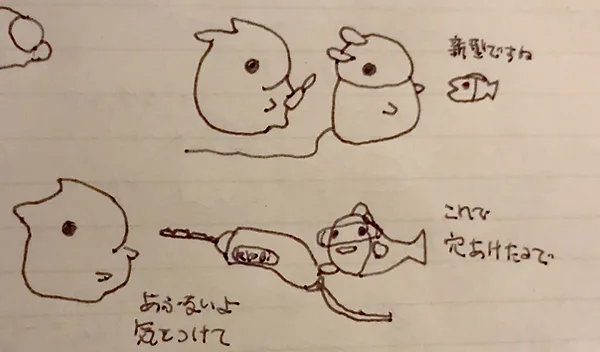 新型ですね
これで
穴あけたるで
あぶないよ
気をつけて